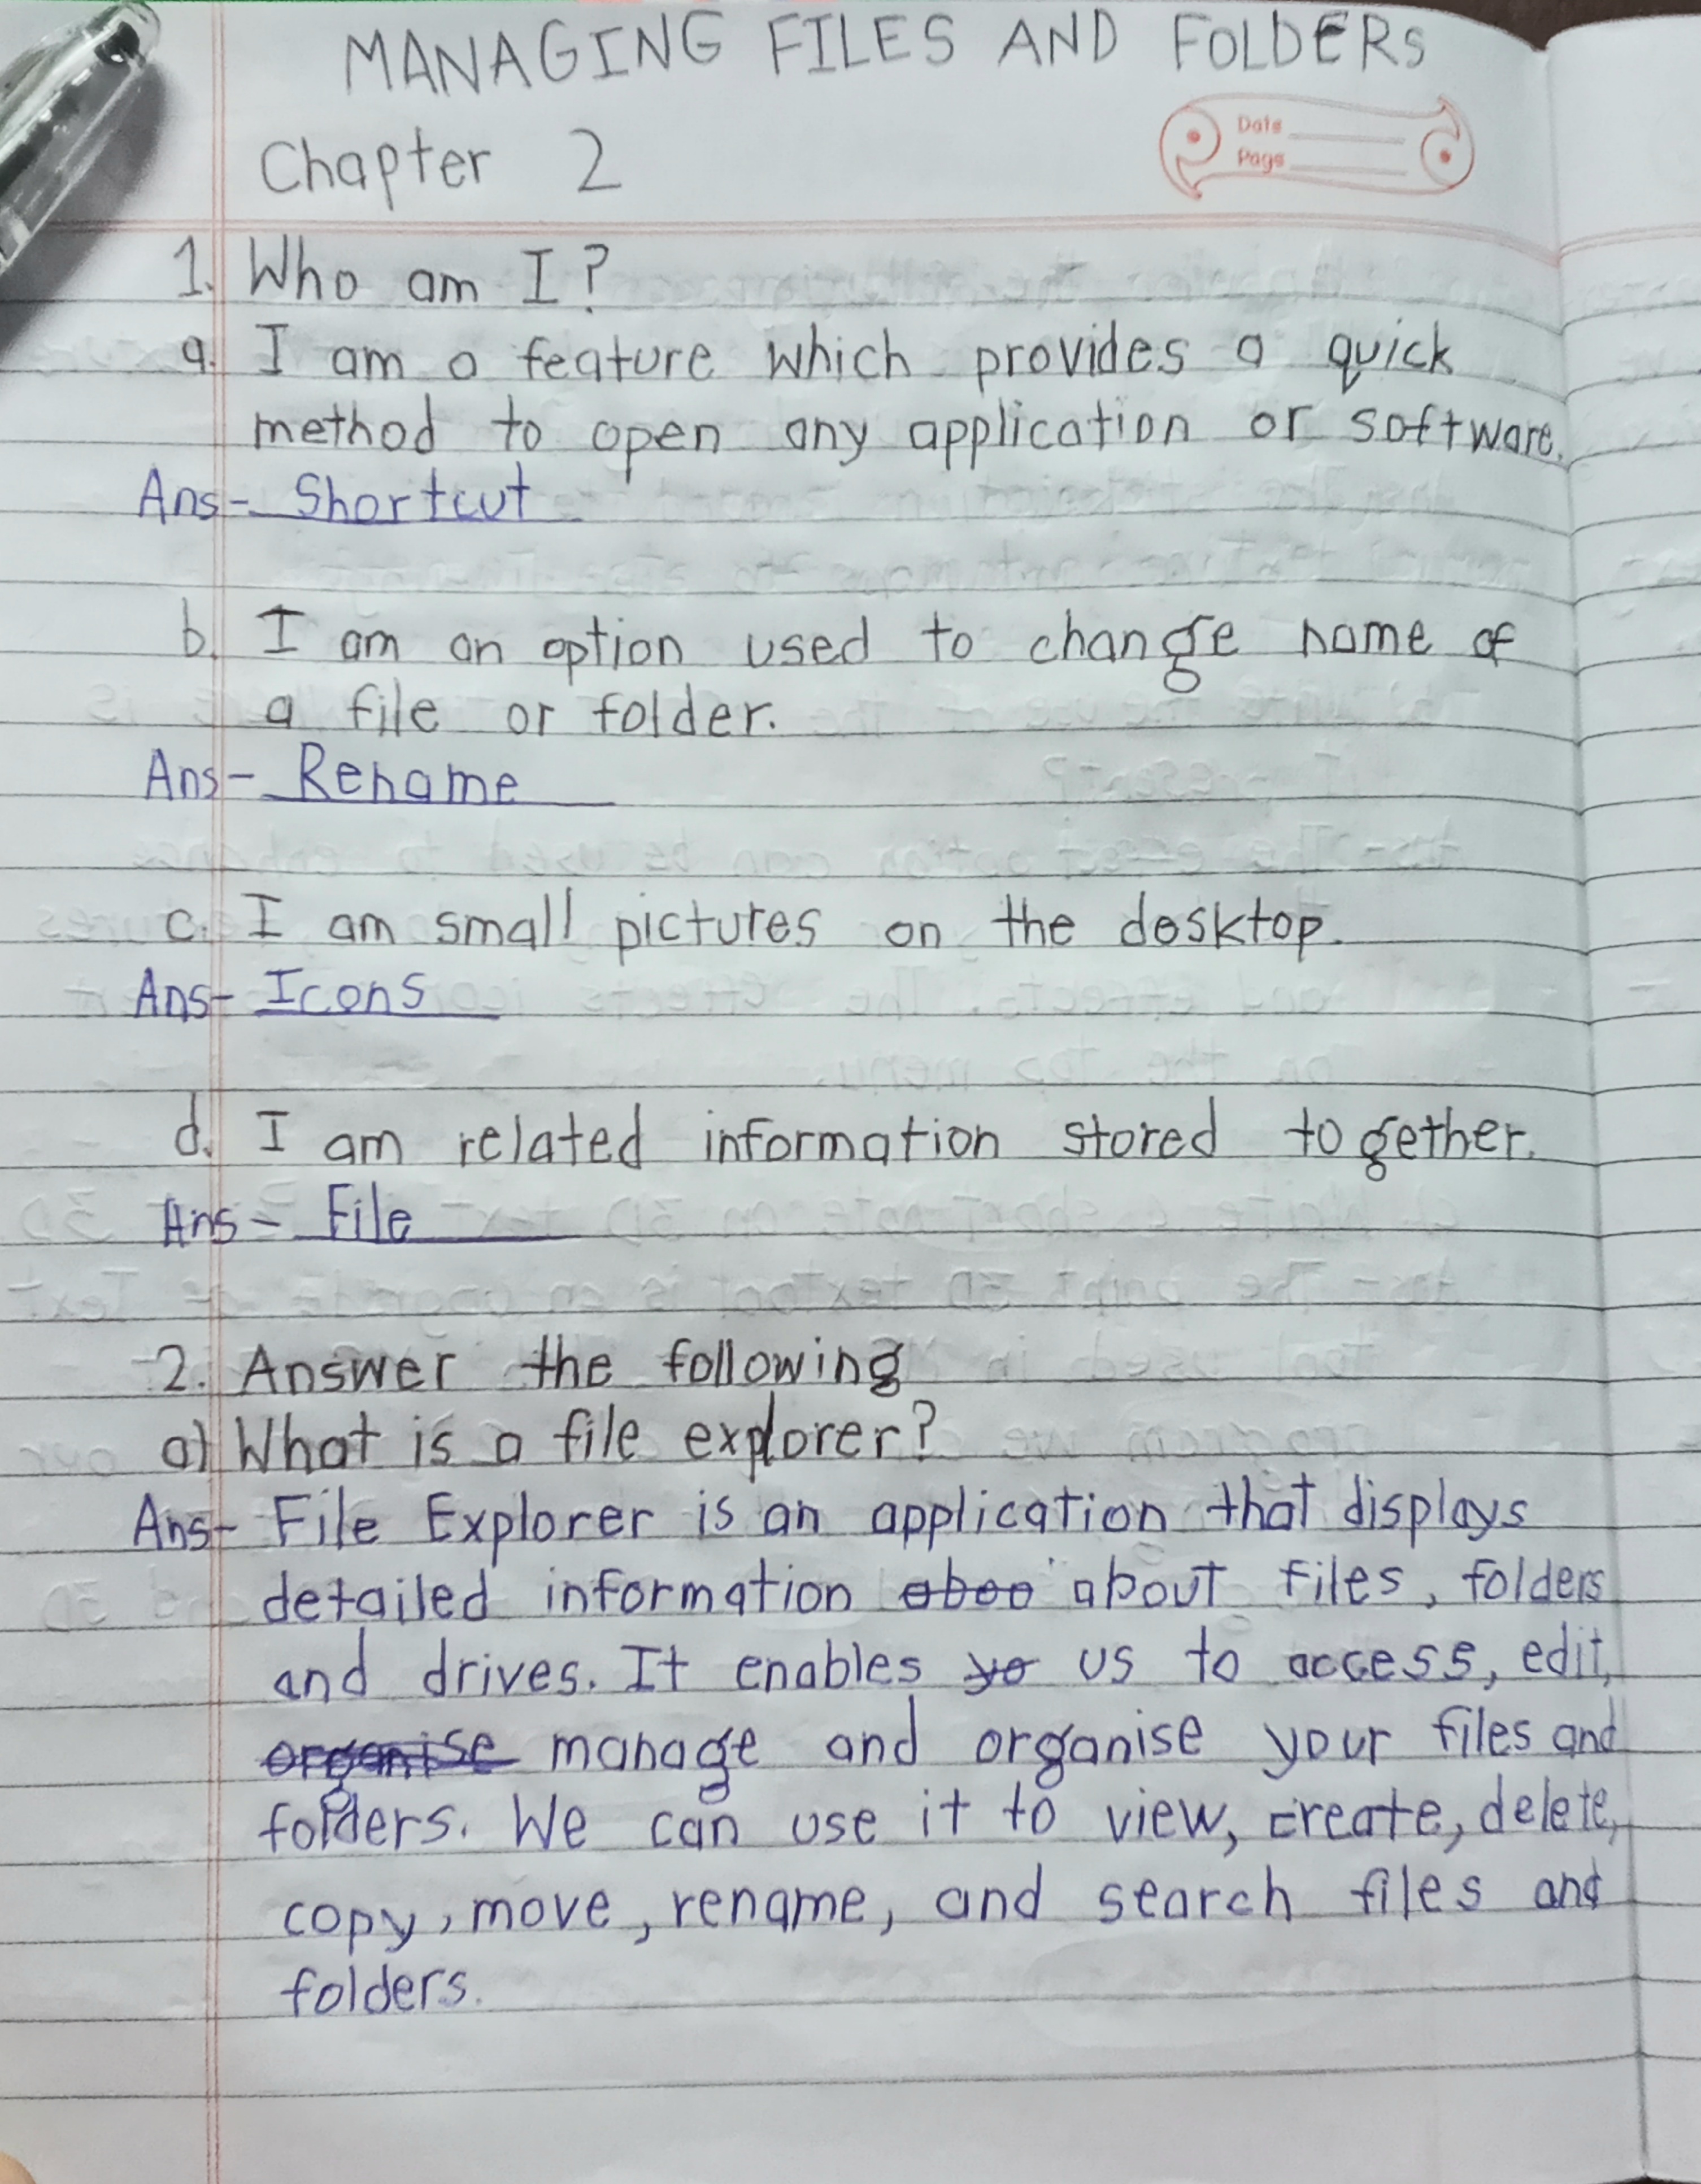 MANAGING FILES AND FOLDERS
Date
Page
Chapter 2
1. Who am I?
a. I am a feature which provides a quick
method to open any application or software.
Ans- Shortcut
b. I am an option used to change name of
a file or folder.
Ans- Rename
c. I am small pictures on the desktop.
Ans- Icons
d. I am related information stored together.
Ans- File
2. Answer the following
a) What is a file explorer?
Ans- File Explorer is an application that displays
detailed information aboo about files, folders
and drives. It enables yo us to access, edit,
organise manage and organise your files and
folders. We can use it to view, create, delete,
copy, move, rename, and search files and
folders.